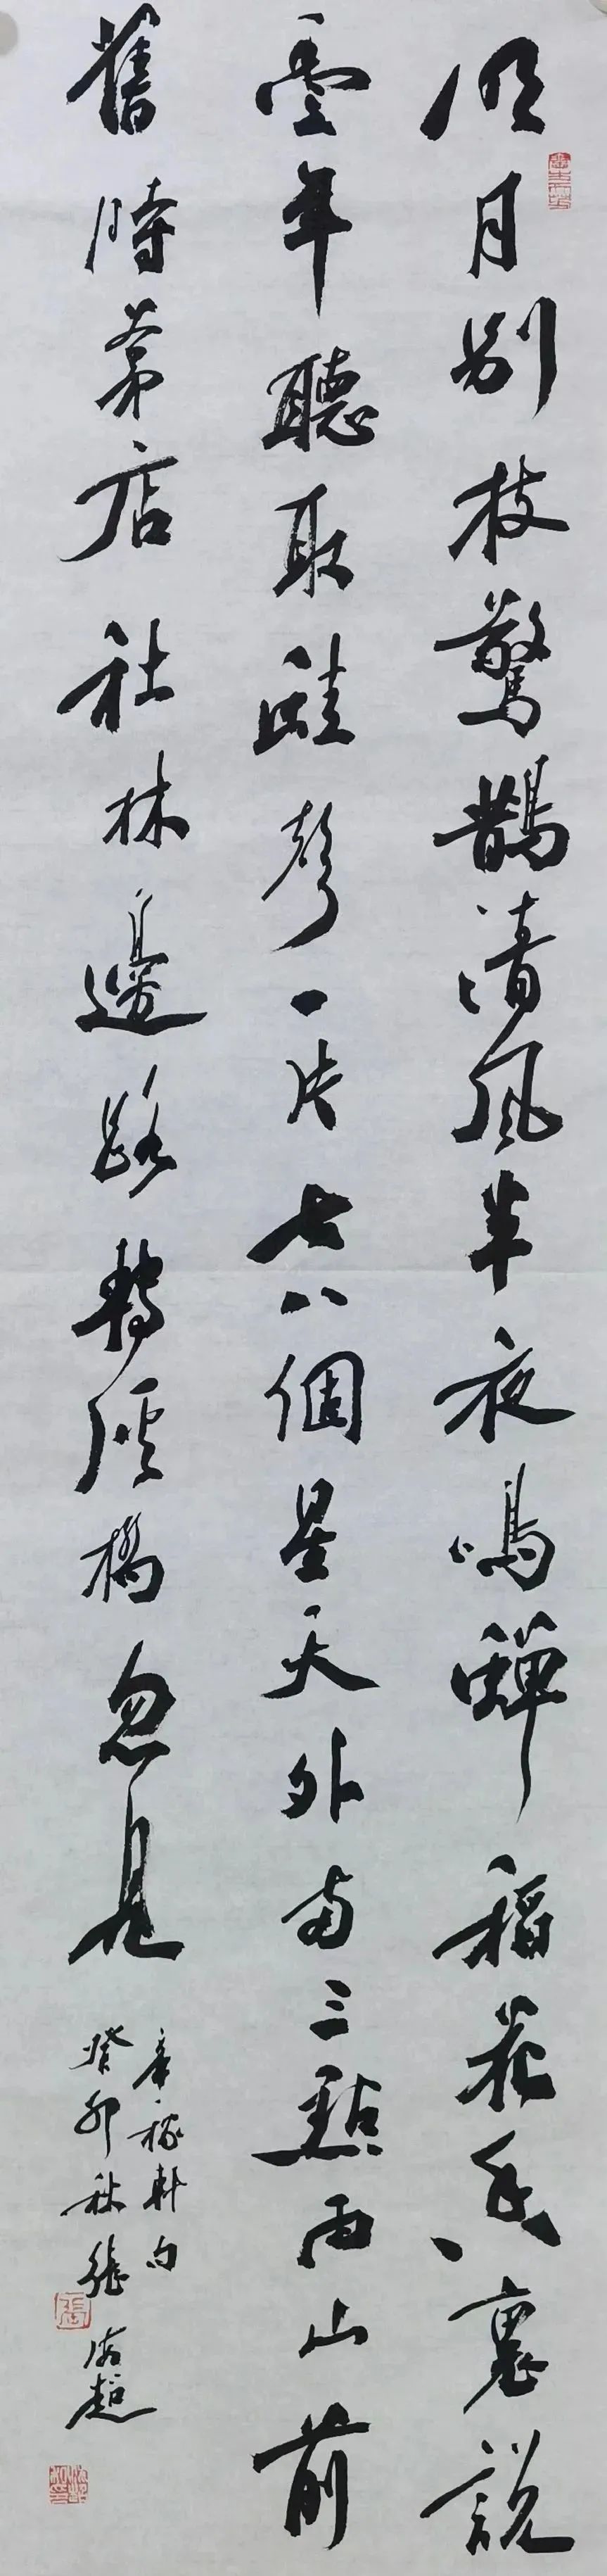 明月别枝驚鵲清風半夜鳴蟬稻花香裏説
豐年聽取蛙聲一片七八個星天外兩三點雨山前
舊時茅店社林邊路轉溪橋忽見
辛稼軒句
癸卯秋張海超